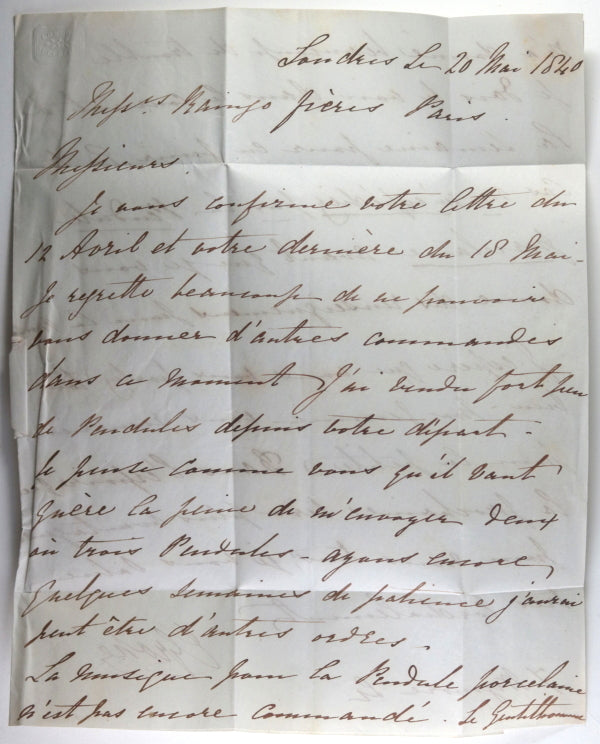 Londres Le 20 Mai 1840
Mess.rs Raingo frères Paris.
Messieurs.
Je vous confirme votre lettre du
12 Avril et votre dernière du 18 Mai-
Je regrette beaucoup de ne pouvoir
vous donner d'autres commandes
dans ce moment J'ai vendu fort peu
de Pendules depuis votre départ -
Je pense comme vous qu'il vaut
guère la peine de m'envoyer deux
ou trois Pendules - ayons encore
Quelques semaines de patience j'aurai
peut être d'autres ordres.
La musique pour la Pendule porcelaine
n'est pas encore commandé. Le Gentilhomme